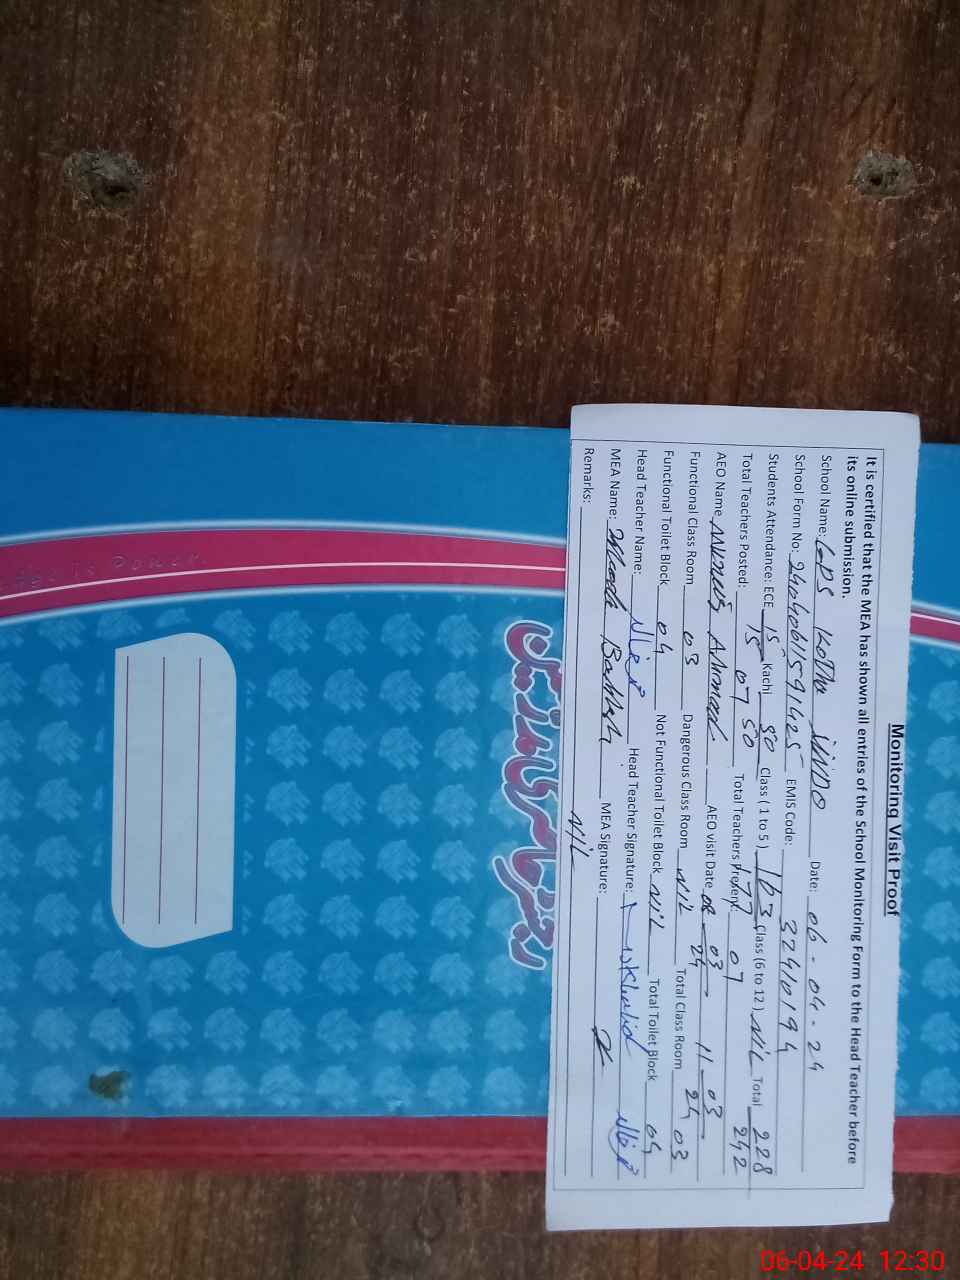 Monitoring Visit Proof
It is certified that the MEA has shown all entries of the School Monitoring Form to the Head Teacher before
its online submission.
School Name: GPS KOTHA Date: 06-04-24
School Form No: EMIS Code: 32410194
Students Attendance: ECE 15 Kachi 50 Class ( 1 to 5 ) 163 Class (6 to 12 ) NIL Total 228
15 50 177 242
Total Teachers Posted: 07 Total Teachers Present: 07
AEO Name Ahmad AEO visit Date 08-03-24 11-03-24
Functional Class Room 03 Dangerous Class Room NIL Total Class Room 03
Functional Toilet Block 04 Not Functional Toilet Block NIL Total Toilet Block 04
Head Teacher Name: Head Teacher Signature:
MEA Name: Bakhsh MEA Signature:
Remarks: NIL
06-04-24 12:30